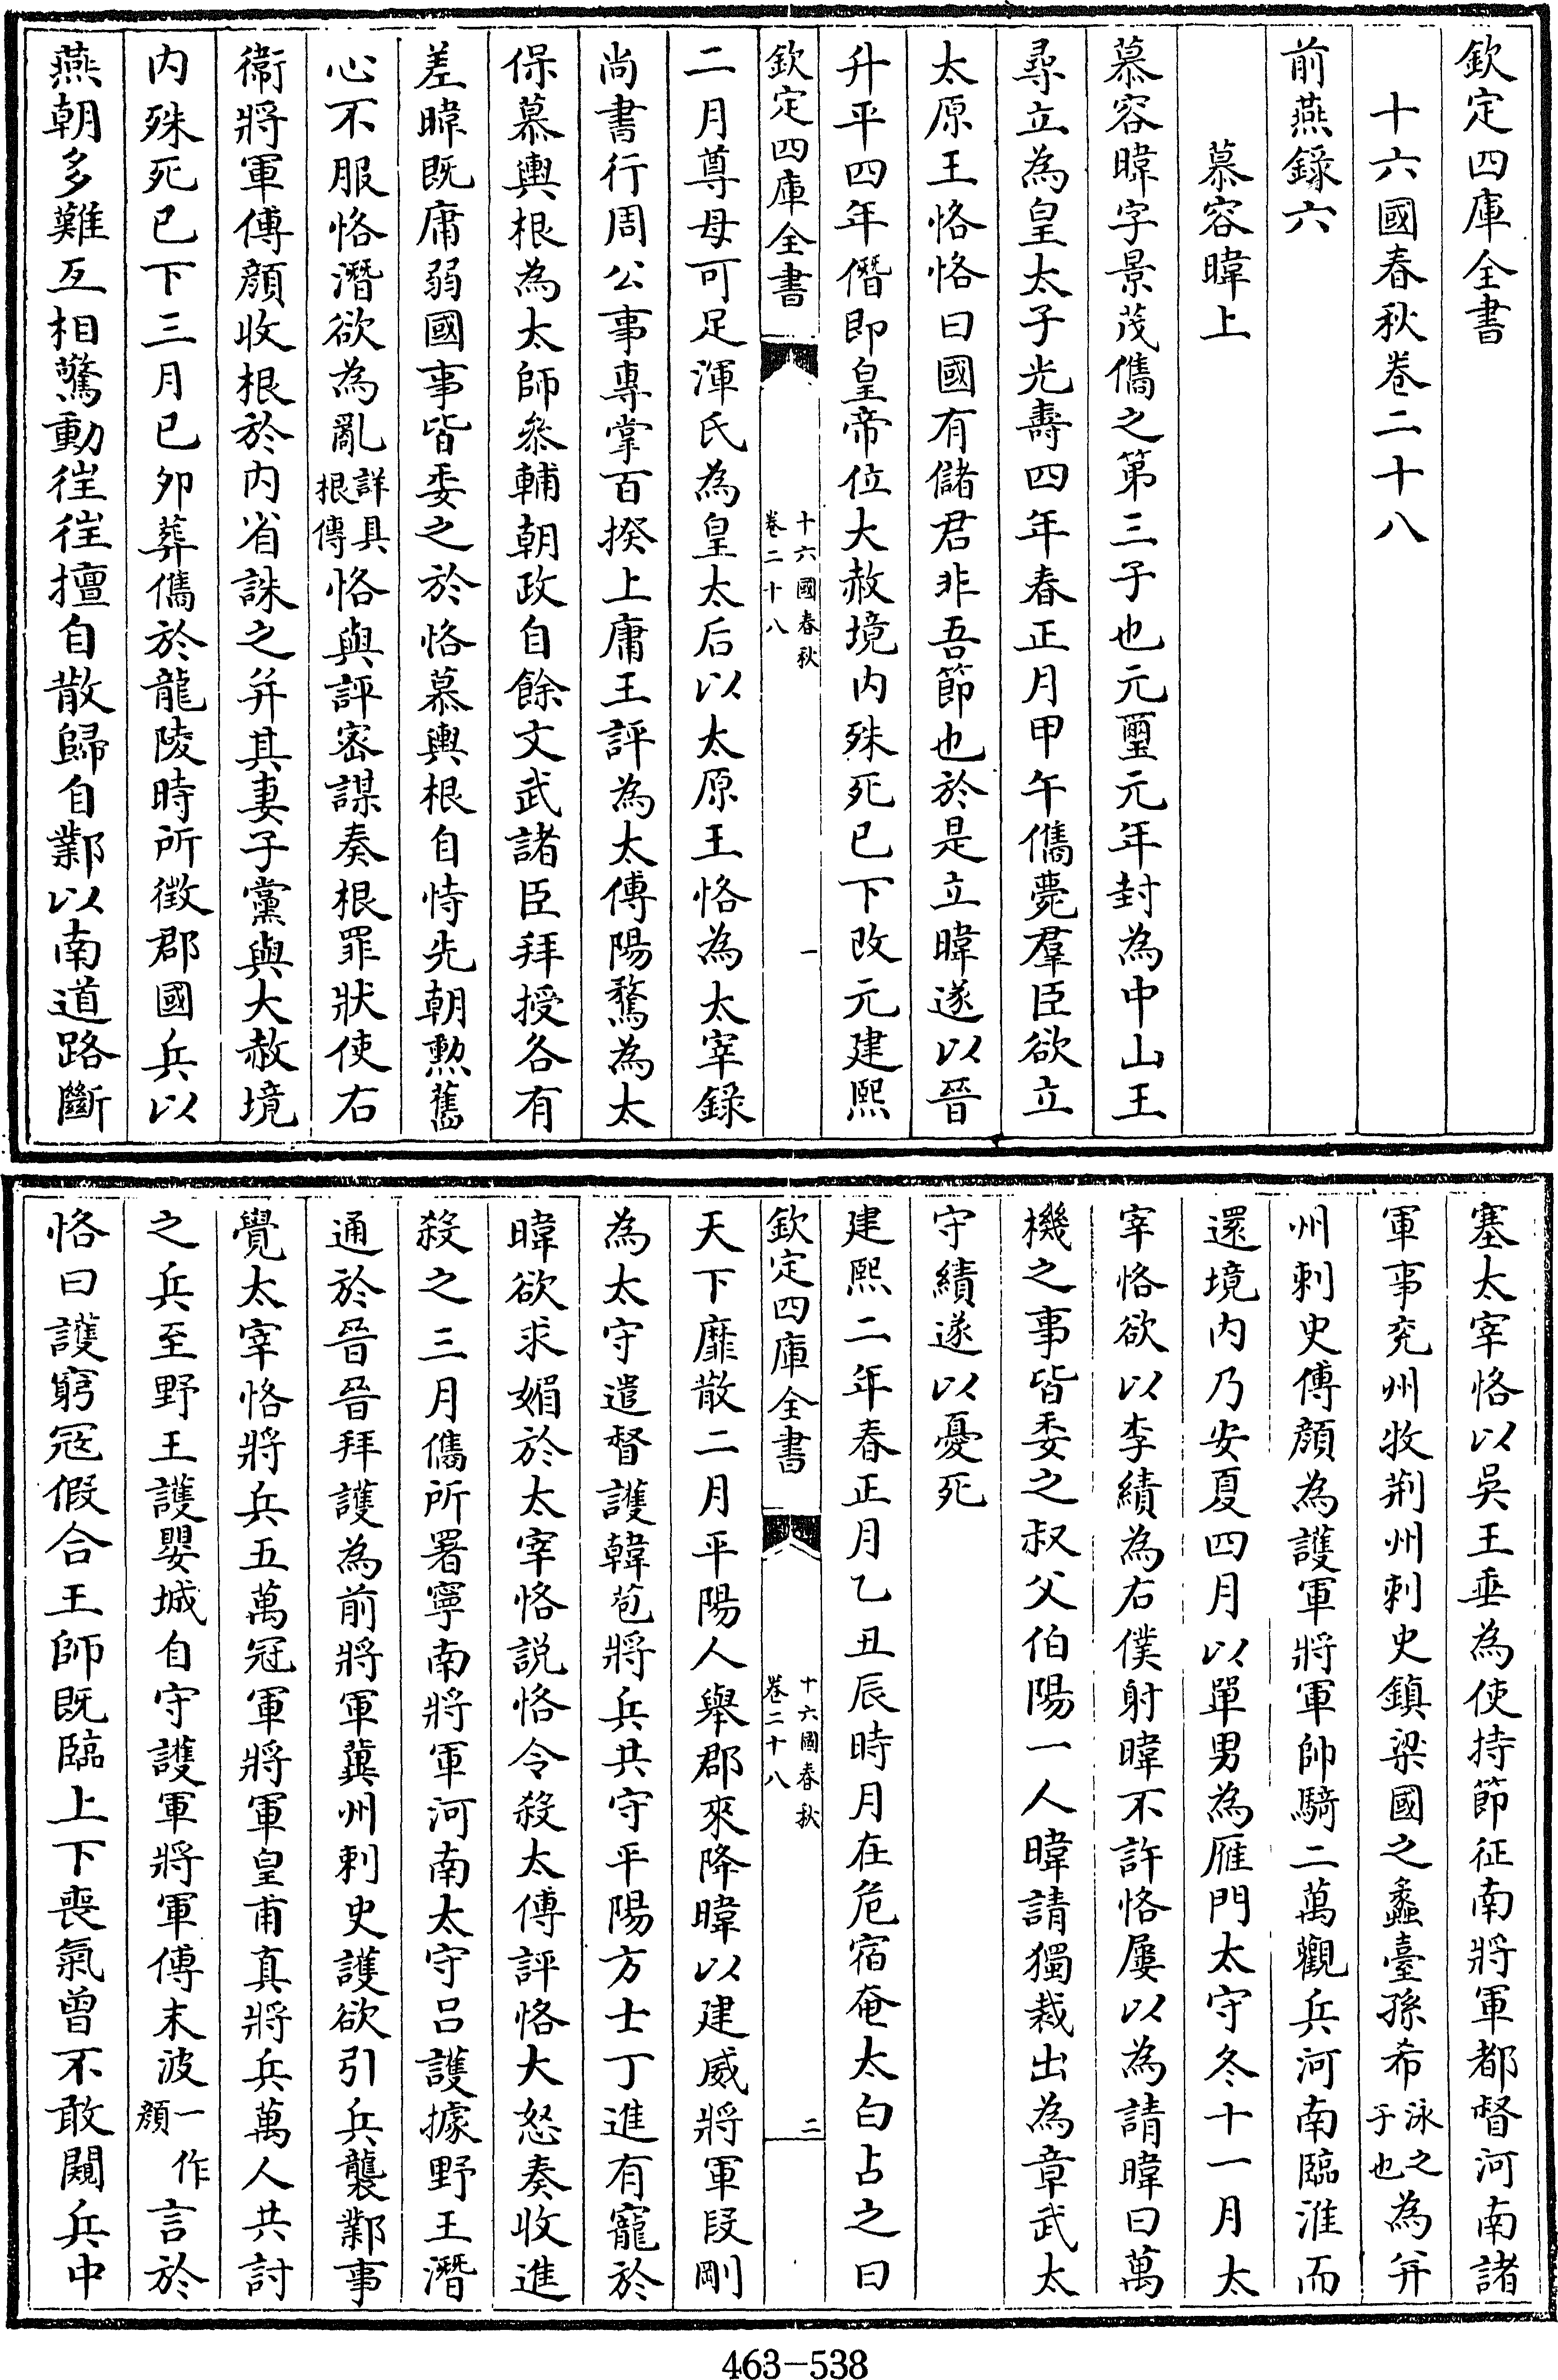 欽定四庫全書
十六國春秋卷二十八
前燕錄六
慕容暐上
慕容暐字景茂儁之第三子也元璽元年封為中山王
尋立為皇太子光壽四年春正月甲午儁薨羣臣欲立
太原王恪恪曰國有儲君非吾節也於是立暐遂以晉
升平四年僭即皇帝位大赦境内殊死已下改元建熙
欽定四庫全書
十六國春秋
卷二十八
一
二月尊母可足渾氏為皇太后以太原王恪為太宰錄
尚書行周公事專掌百揆上庸王評為太傅陽騖為太
保慕輿根為太師叅輔朝政自餘文武諸臣拜授各有
差暐既庸弱國事皆委之於恪慕輿根自恃先朝勲舊
心不服恪潛欲為亂詳具根傳恪與評密謀奏根罪狀使右
衛將軍傅顔收根於内省誅之并其妻子黨與大赦境
内殊死已下三月已卯葬儁於龍陵時所徵郡國兵以
燕朝多難互相驚動往往擅自散歸自鄴以南道路斷
塞太宰恪以吳王垂為使持節征南將軍都督河南諸
軍事兖州牧荆州刺史鎮梁國之蠡臺孫希泳之子也為并
州刺史傅顔為護軍將軍帥騎二萬觀兵河南臨淮而
還境内乃安夏四月以單男為雁門太守冬十一月太
宰恪欲以李績為右僕射暐不許恪屢以為請暐曰萬
機之事皆委之叔父伯陽一人暐請獨裁出為章武太
守績遂以憂死
建熙二年春正月乙丑辰時月在危宿奄太白占之曰
欽定四庫全書
十六國春秋
卷二十八
二
天下靡散二月平陽人舉郡來降暐以建威將軍段剛
為太守遣督護韓苞將兵共守平陽方士丁進有寵於
暐欲求媚於太宰恪説恪令殺太傅評恪大怒奏收進
殺之三月儁所署寧南將軍河南太守呂護據野王潛
通於晉晉拜護為前將軍冀州刺史護欲引兵襲鄴事
覺太宰恪將兵五萬冠軍將軍皇甫真將兵萬人共討
之兵至野王護嬰城自守護軍將軍傅末波一作顔言於
恪曰護窮寇假合王師既臨上下喪氣曾不敢闚兵中
463-538